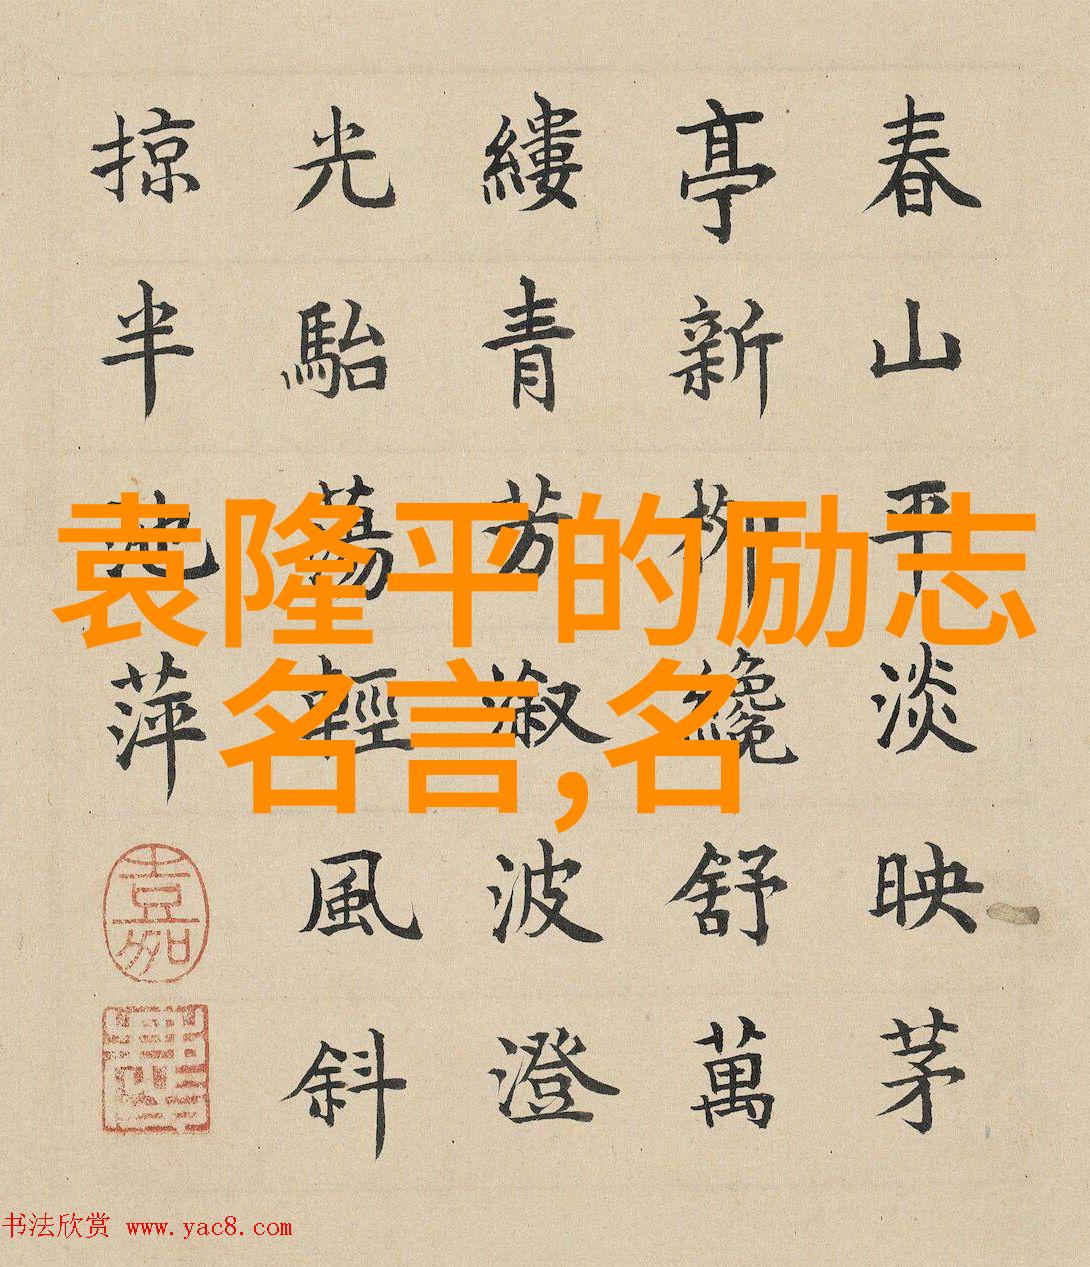 春山平淡映茅
亭新柳纔舒萬
縷青芳淑波澄
光駘蕩輕風斜
掠半池萍
嘉
袁隆平的励志
名言,名
书法欣赏 www.yac8.com